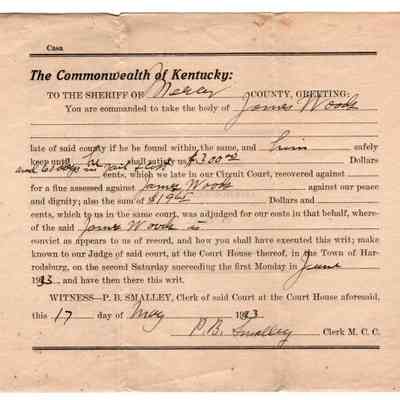 Casa
The Commonwealth of Kentucky:
TO THE SHERIFF OF Mercer COUNTY, GREETING:
You are commanded to take the body of James Woods
late of said county if he be found within the same, and him safely
keep until he shall satisfy us $300.00 Dollars
and 60 days in jail cents, which we late in our Circuit Court, recovered against
for a fine assessed against James Woods against our peace
and dignity; also the sum of $19 Dollars and
cents, which to us in the same court, was adjudged for our costs in that behalf, where-
of the said James Woods is
convict as appears to us of record, and how you shall have executed this writ; make
known to our Judge of said court, at the Court House thereof, in the Town of Har-
rodsburg, on the second Saturday succeeding the first Monday in June
1923, and have then there this writ.
WITNESS—P. B. SMALLEY, Clerk of said Court at the Court House aforesaid,
this 17 day of May 1923
P.B. Smalley Clerk M. C. C.